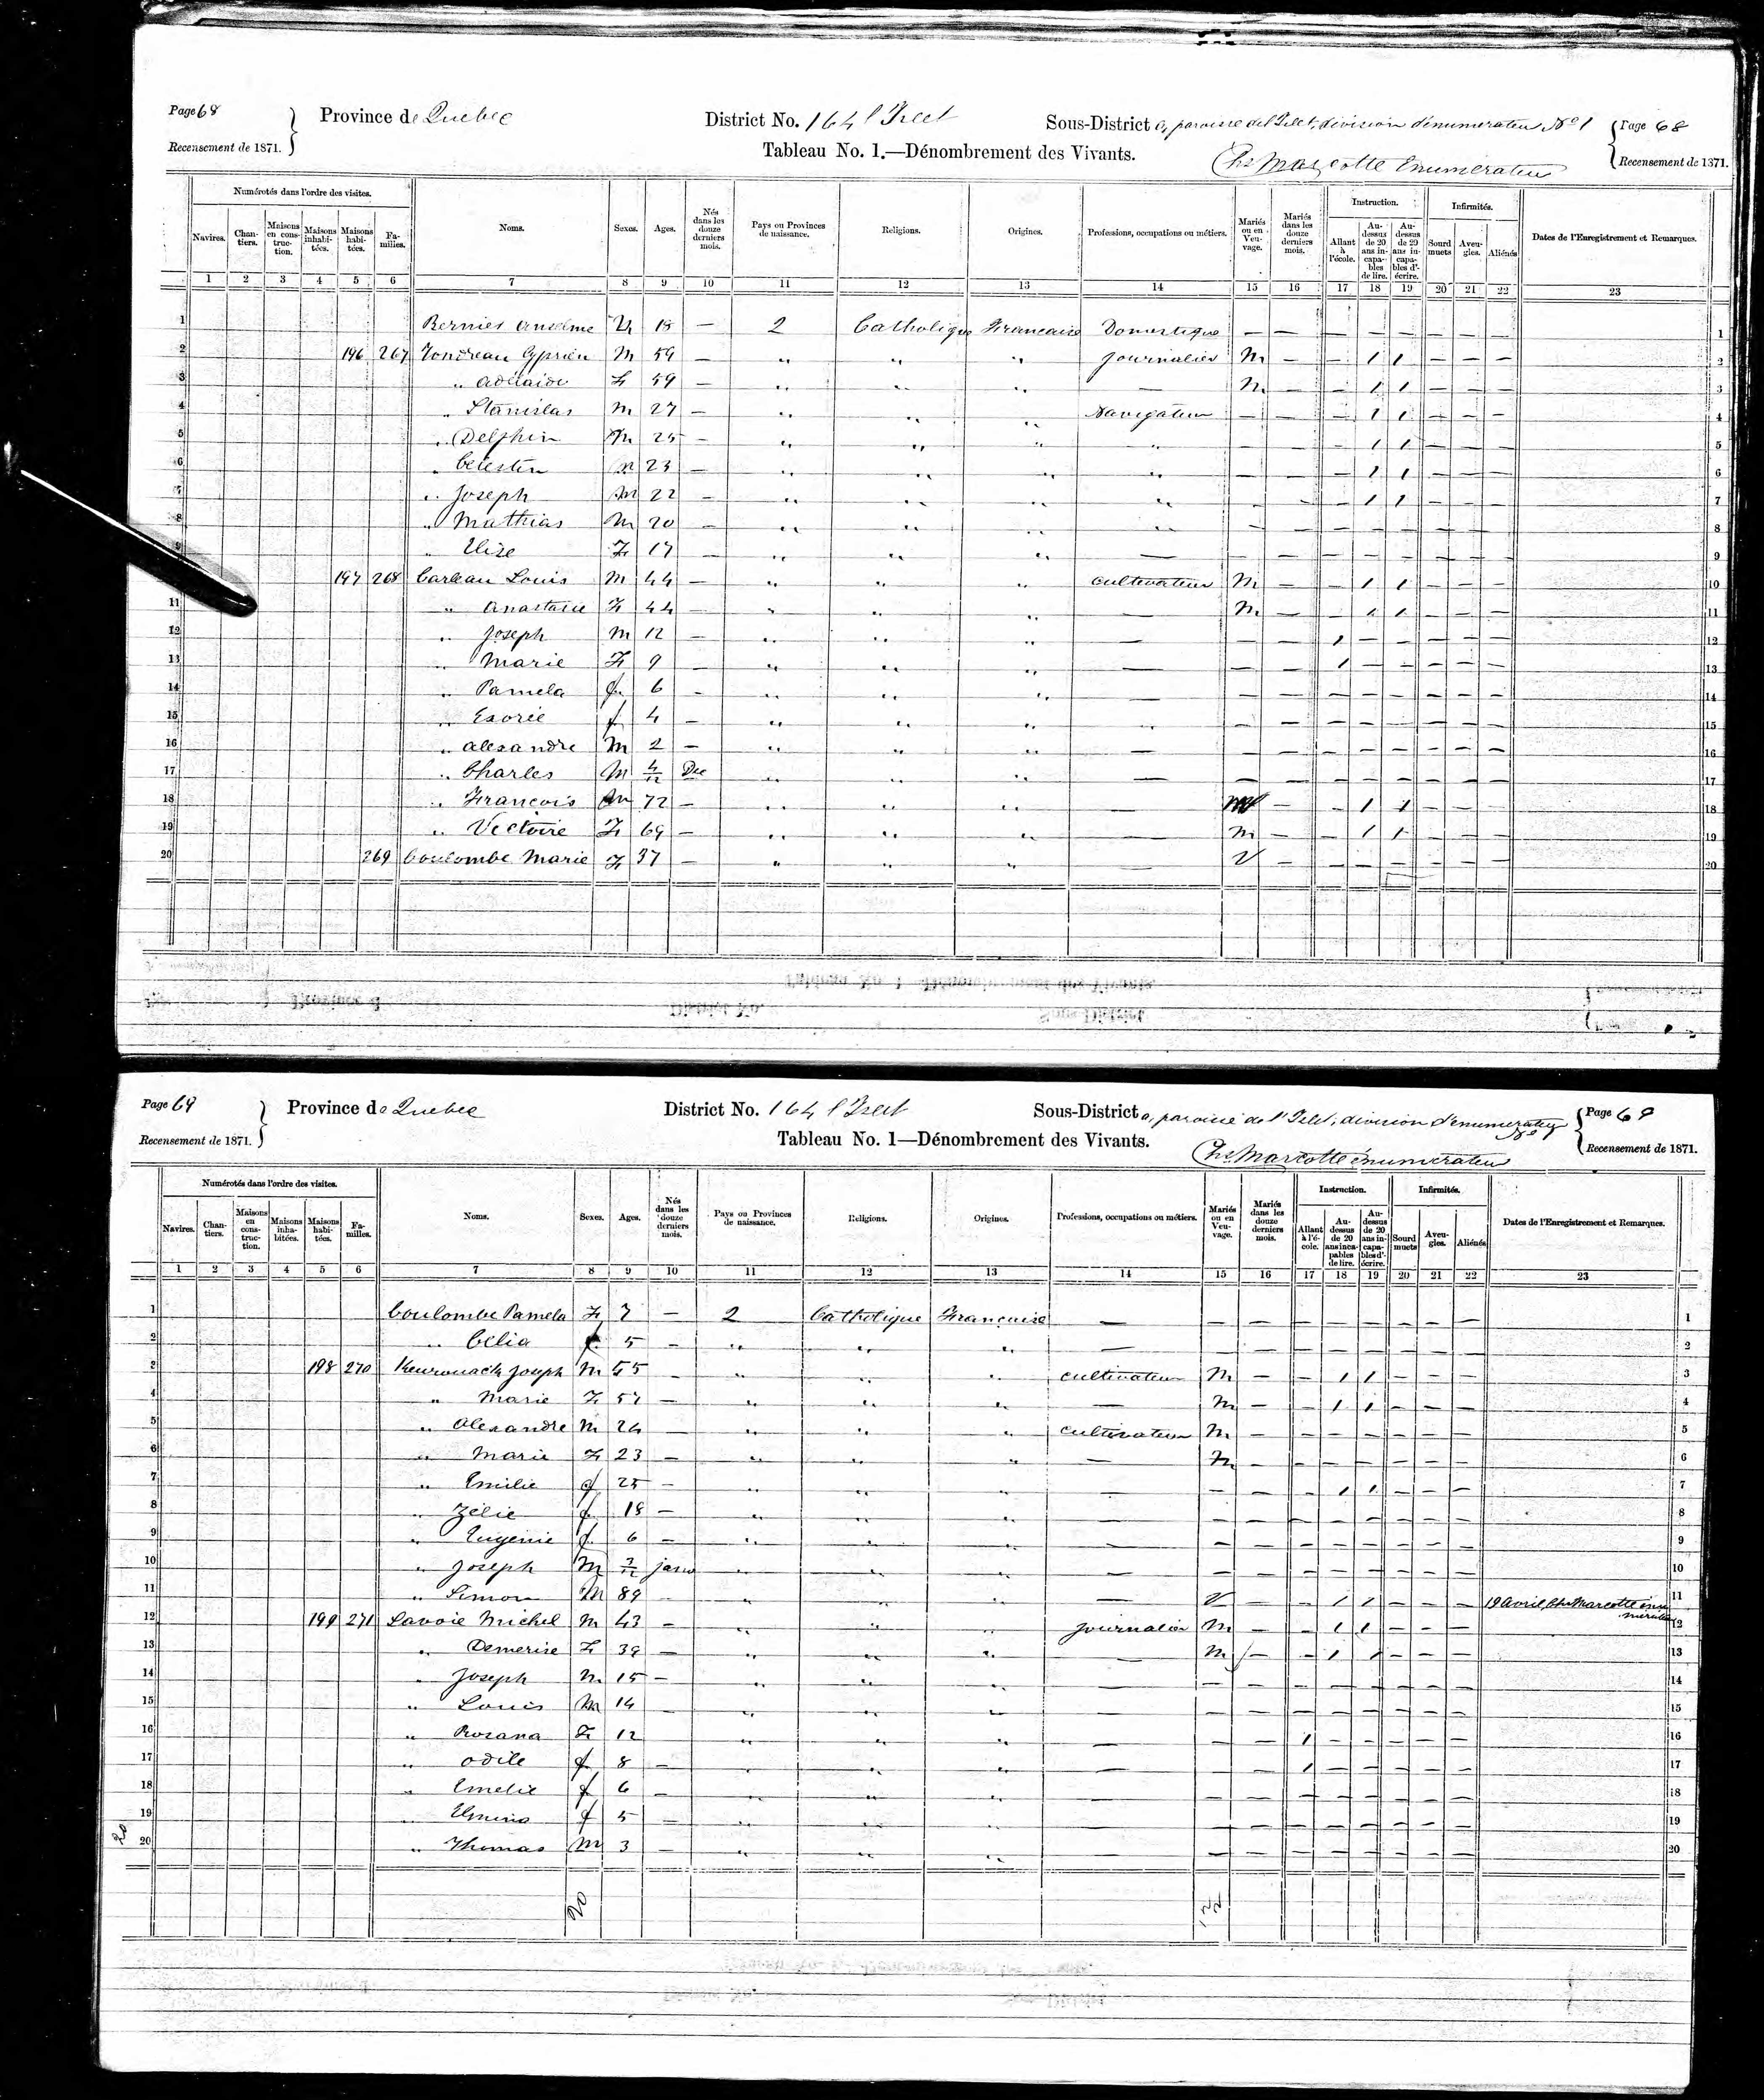 Page 68
Province de Quebec
District No. 164 l'Islet
Sous-District a, paroisse de l'Islet, division d'enumerateur No 1
Page 68
Recensement de 1871.
Tableau No. 1.—Dénombrement des Vivants.
Chs Marcotte Enumerateur
Recensement de 1871.
Numérotés dans l'ordre des visites.
Navires. Chantiers. Maisons en construction. Maisons inhabitées. Maisons habitées. Familles. Noms. Sexes. Ages. Nés dans les douze derniers mois. Pays ou Provinces de naissance. Religions. Origines. Professions, occupations ou métiers. Mariés ou en Veuvage. Mariés dans les douze derniers mois. Instruction. Allant à l'école. Au-dessus de 20 ans incapables de lire. Au-dessus de 20 ans incapables d'écrire. Infirmités. Sourd muets Aveugles. Aliénés Dates de l'Enregistrement et Remarques.
1 2 3 4 5 6 7 8 9 10 11 12 13 14 15 16 17 18 19 20 21 22 23
1 Bernier Anselme M 18 — 2 Catholique Francaise Domestique — — — — — — — — 1
2 196 267 Tondreau Cyprien M 59 — " " " journalier M — — 1 1 — — — 2
3 " Adelaide F 59 — " " " — M — — 1 1 — — — 3
4 " Stanislas M 27 — " " " Navigateur — — — 1 1 — — — 4
5 " Delphin M 25 — " " " " — — — 1 1 — — — 5
6 " Celestin M 23 — " " " " — — — 1 1 — — — 6
7 " Joseph M 22 — " " " " — — — 1 1 — — — 7
8 " Mathias M 20 — " " " " — — — — — — — — 8
9 " Elise F 17 — " " " — — — — — — — — — 9
10 197 268 Carleau Louis M 44 — " " " cultivateur M — — 1 1 — — — 10
11 " Anastasie F 44 — " " " — M — — 1 1 — — — 11
12 " Joseph M 12 — " " " — — — 1 — — — — — 12
13 " Marie F 9 — " " " — — — 1 — — — — — 13
14 " Pamela f 6 — " " " — — — — — — — — — 14
15 " f 4 — " " " — — — — — — — — — 15
16 " Alexandre M 2 — " " " — — — — — — — — — 16
17 " Charles M 4/12 Dec " " " — — — — — — — — — 17
18 " Francois M 72 — " " " — M — — 1 1 — — — 18
19 " Victoire F 69 — " " " — M — — 1 1 — — — 19
20 269 Coulombe Marie F 37 — " " " — V — — — — — — — 20
Page 69
Province de Quebec
District No. 164 l'Islet
Sous-District a, paroisse de l'Islet, division d'enumerateur No
Page 69
Recensement de 1871.
Tableau No. 1—Dénombrement des Vivants.
Chs Marcotte énumérateur
Recensement de 1871.
Numérotés dans l'ordre des visites.
Navires. Chantiers. Maisons en construction. Maisons inhabitées. Maisons habitées. Familles. Noms. Sexes. Ages. Nés dans les douze derniers mois. Pays ou Provinces de naissance. Religions. Origines. Professions, occupations ou métiers. Mariés ou en Veuvage. Mariés dans les douze derniers mois. Instruction. Allant à l'école. Au-dessus de 20 ans incapables de lire. Au-dessus de 20 ans incapables d'écrire. Infirmités. Sourd muets Aveugles. Aliénés Dates de l'Enregistrement et Remarques.
1 2 3 4 5 6 7 8 9 10 11 12 13 14 15 16 17 18 19 20 21 22 23
1 Coulombe Pamela F 7 — 2 Catholique Francaise — — — — — — — — — 1
2 " Célia f 5 — " " " — — — — — — — — — 2
2 198 270 Keurouack Joseph M 55 — " " " cultivateur M — — 1 1 — — — 3
4 " Marie F 57 — " " " — M — — 1 1 — — — 4
5 " Alexandre M 24 — " " " cultivateur M — — — — — — — 5
6 " Marie F 23 — " " " — M — — — — — — — 6
7 " Emilie f 25 — " " " — — — — 1 1 — — — 7
8 " Zélie f 18 — " " " — — — — — — — — — 8
9 " Eugenie f 6 — " " " — — — — — — — — — 9
10 " Joseph M 3/12 janv " " " — — — — — — — — — 10
11 " Simon M 89 — " " " — V — — 1 1 — — — 19 Avril Chs Marcotte énumérateur 11
12 199 271 Lavoie Michel M 43 — " " " journalier M — — 1 1 — — — 12
13 " Demerise F 39 — " " " — M — — 1 1 — — — 13
14 " Joseph M 15 — " " " — — — — — — — — — 14
15 " Louis M 14 — " " " — — — — — — — — — 15
16 " Rosana F 12 — " " " — — — 1 — — — — — 16
17 " Odile f 8 — " " " — — — 1 — — — — — 17
18 " Emelie f 6 — " " " — — — — — — — — — 18
19 " Elmina f 5 — " " " — — — — — — — — — 19
20 " Thomas M 3 — " " " — — — — — — — — — 20
20
20